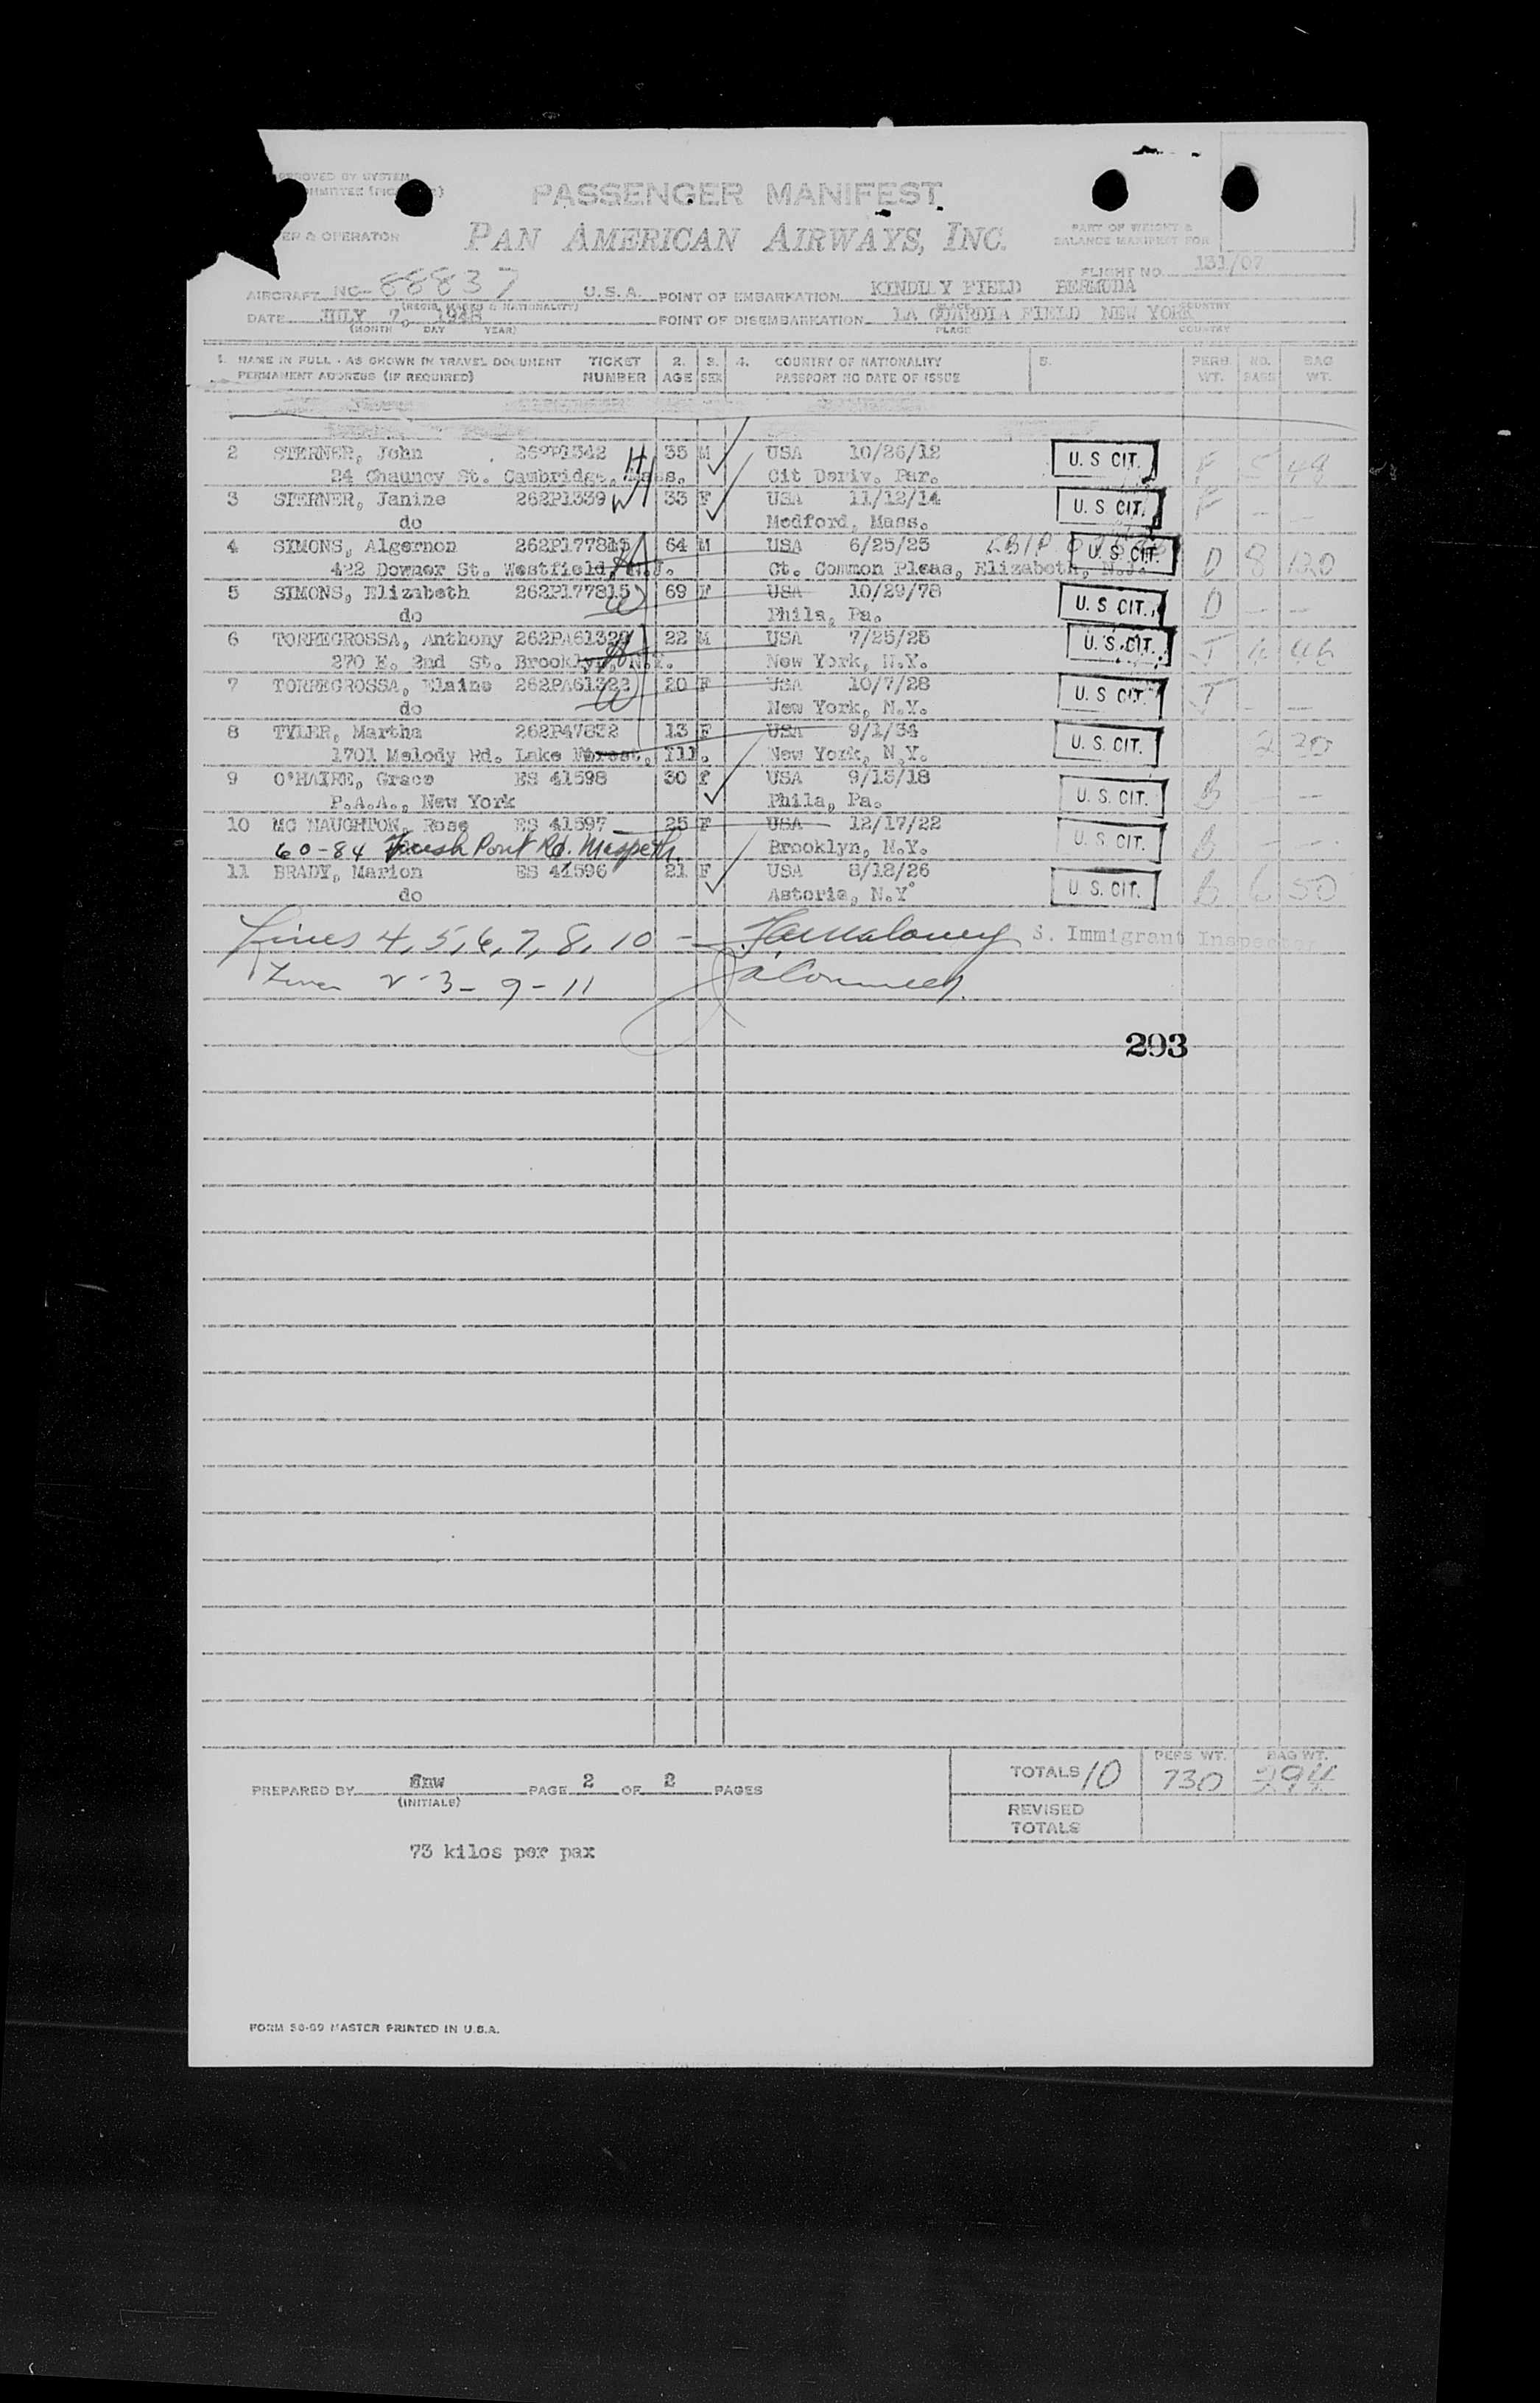 PROVED BY SYSTEM
PASSENGER MANIFEST
PAN AMERICAN AIRWAYS, INC.
& OPERATOR
PART OF WEIGHT &
BALANCE MANIFEST FOR
FLIGHT NO. 131/07
AIRCRAFT NC-88837 U.S.A. POINT OF EMBARKATION KINDLEY FIELD BERMUDA
(REGIS. MARKS & NATIONALITY) PLACE COUNTRY
DATE JULY 7, 1948 POINT OF DISEMBARKATION LA GUARDIA FIELD NEW YORK
(MONTH DAY YEAR) PLACE COUNTRY
1. NAME IN FULL - AS SHOWN IN TRAVEL DOCUMENT TICKET 2. 3. 4. COUNTRY OF NATIONALITY 5. PERS. NO. BAG
PERMANENT ADDRESS (IF REQUIRED) NUMBER AGE SEX PASSPORT NO DATE OF ISSUE WT. BAGS WT.
2 STERNER, John 262P1342 H 35 M USA 10/26/12 U. S CIT. F 5 49
24 Chauncy St. Cambridge, Mass. Cit Deriv. Par.
3 STERNER, Janine 262P1339 W 33 F USA 11/12/14 U. S CIT. F — —
do Medford, Mass.
4 SIMONS, Algernon 262P177815 H 64 M USA 6/25/25 U. S. CIT. D 8 120
422 Downer St. Westfield, N.J. Ct. Common Pleas, Elizabeth, N.J.
5 SIMONS, Elizabeth 262P177815 W 69 F USA 10/29/78 U. S CIT. D — —
do Phila, Pa.
6 TORREGROSSA, Anthony 262PA61320 H 22 M USA 7/25/25 U. S. CIT. J 4 46
270 E. 2nd St. Brooklyn, N.Y. New York, N.Y.
7 TORREGROSSA, Elaine 262PA61322 W 20 F USA 10/7/28 U. S CIT. J — —
do New York, N.Y.
8 TYLER, Martha 262P47832 13 F USA 9/1/34 U. S. CIT. 2 20
1701 Melody Rd. Lake Forest, Ill. New York, N.Y.
9 O'HAIRE, Grace ES 41598 30 F USA 9/15/18 U. S. CIT. B — —
P.A.A., New York Phila, Pa.
10 MC NAUGHTON, Rose ES 41597 25 F USA 12/17/22 U. S. CIT. B — —
60-84 Fresh Pont Rd. Maspeth. Brooklyn, N.Y.
11 BRADY, Marion ES 41596 21 F USA 8/18/26 U. S. CIT. B 6 50
do Astoria, N.Y.
Lines 4, 5, 6, 7, 8, 10 — S. Immigrant Inspector
Lines 2-3-9-11
293
PREPARED BY PAGE 2 OF 2 PAGES
(INITIALS)
TOTALS 10 PERS WT. 730 BAG WT. 294
REVISED
TOTALS
73 kilos per pax
FORM 50-59 MASTER PRINTED IN U.S.A.